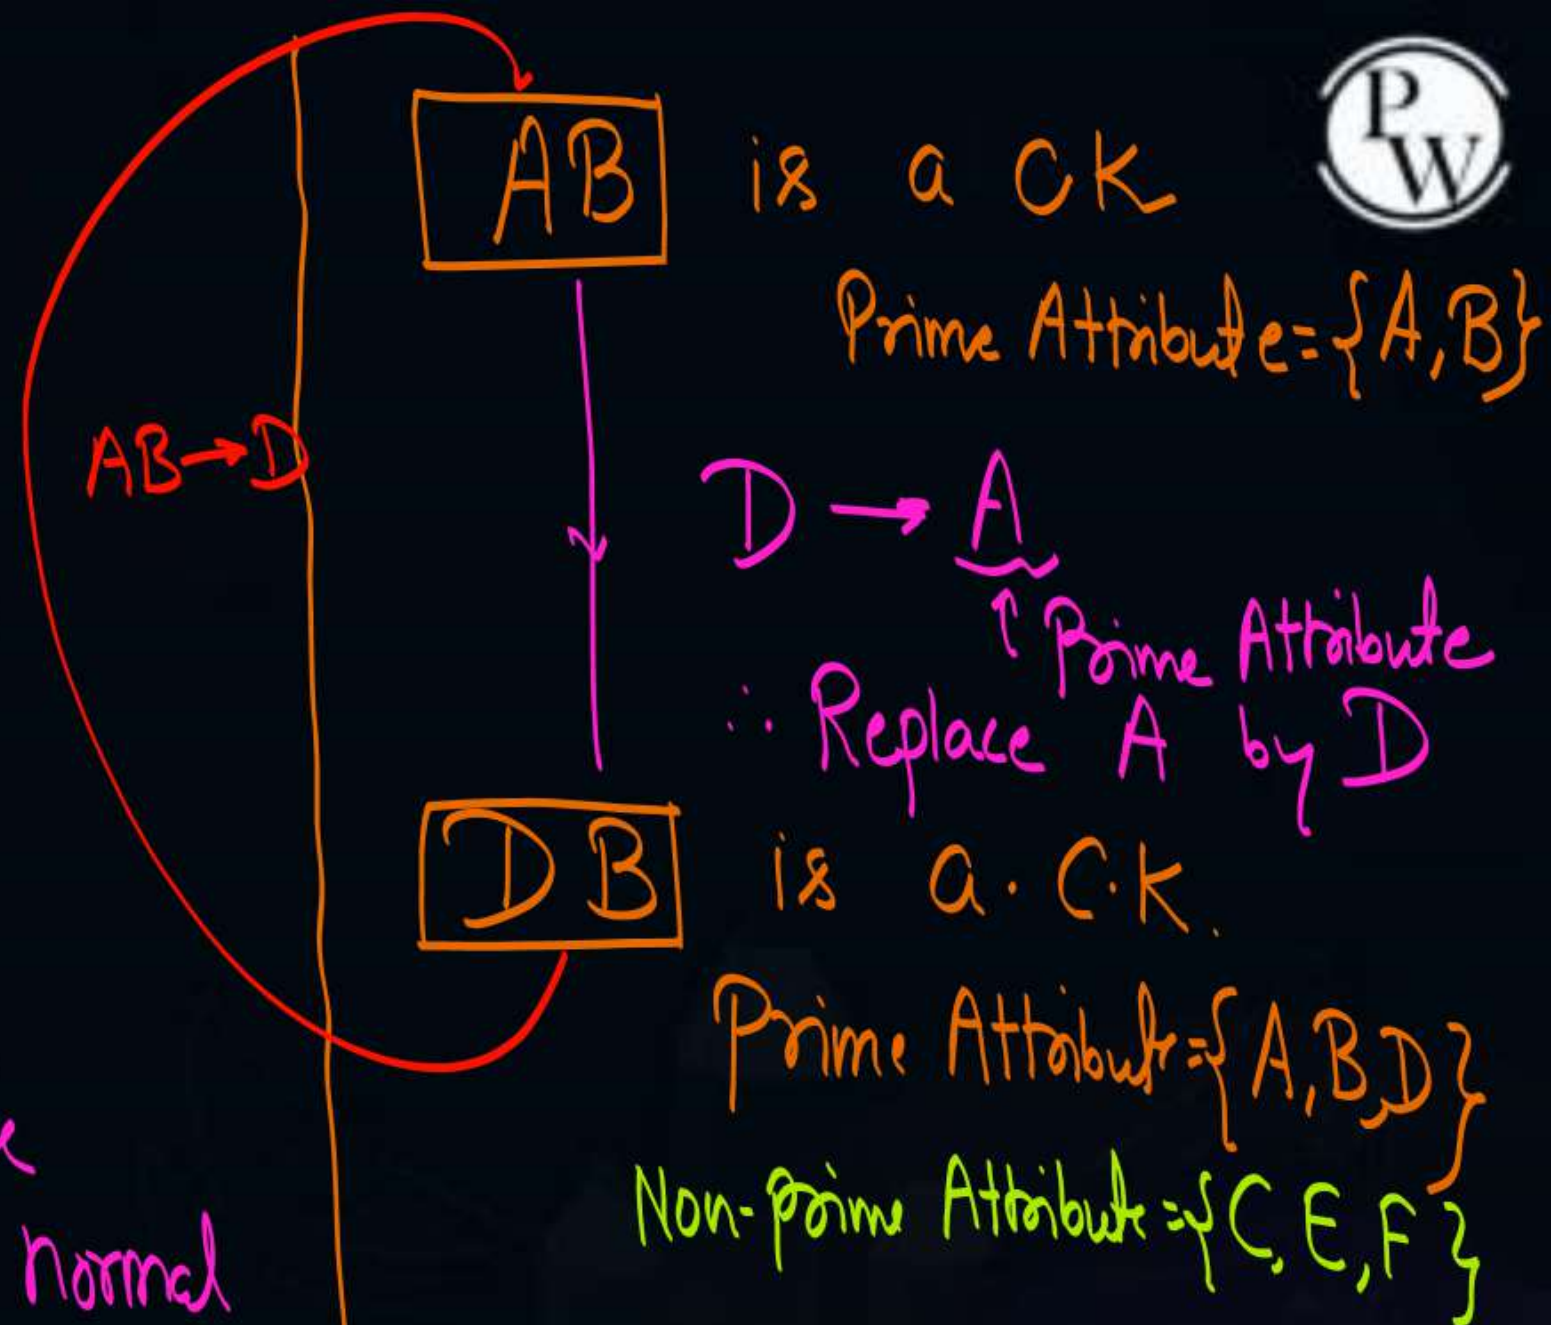 PW
AB is a CK
Prime Attribute={A,B}
AB→D
D → A
↑ Prime Attribute
∴ Replace A by D
DB is a.C.K.
Prime Attribute={A,B,D}
Non-prime Attribute={C,E,F}
normal